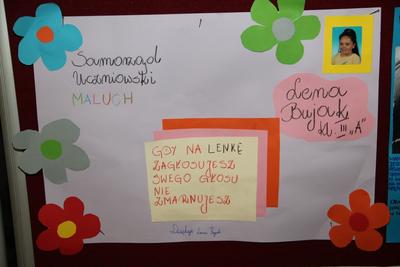 Samorząd
Uczniowski
MALUCH
Lena
Bujak
kl. III „A”
GDY NA LENKĘ
ZAGŁOSUJESZ
SWEGO GŁOSU
NIE
ZMARNUJESZ
Dziękuję Lena Bujak